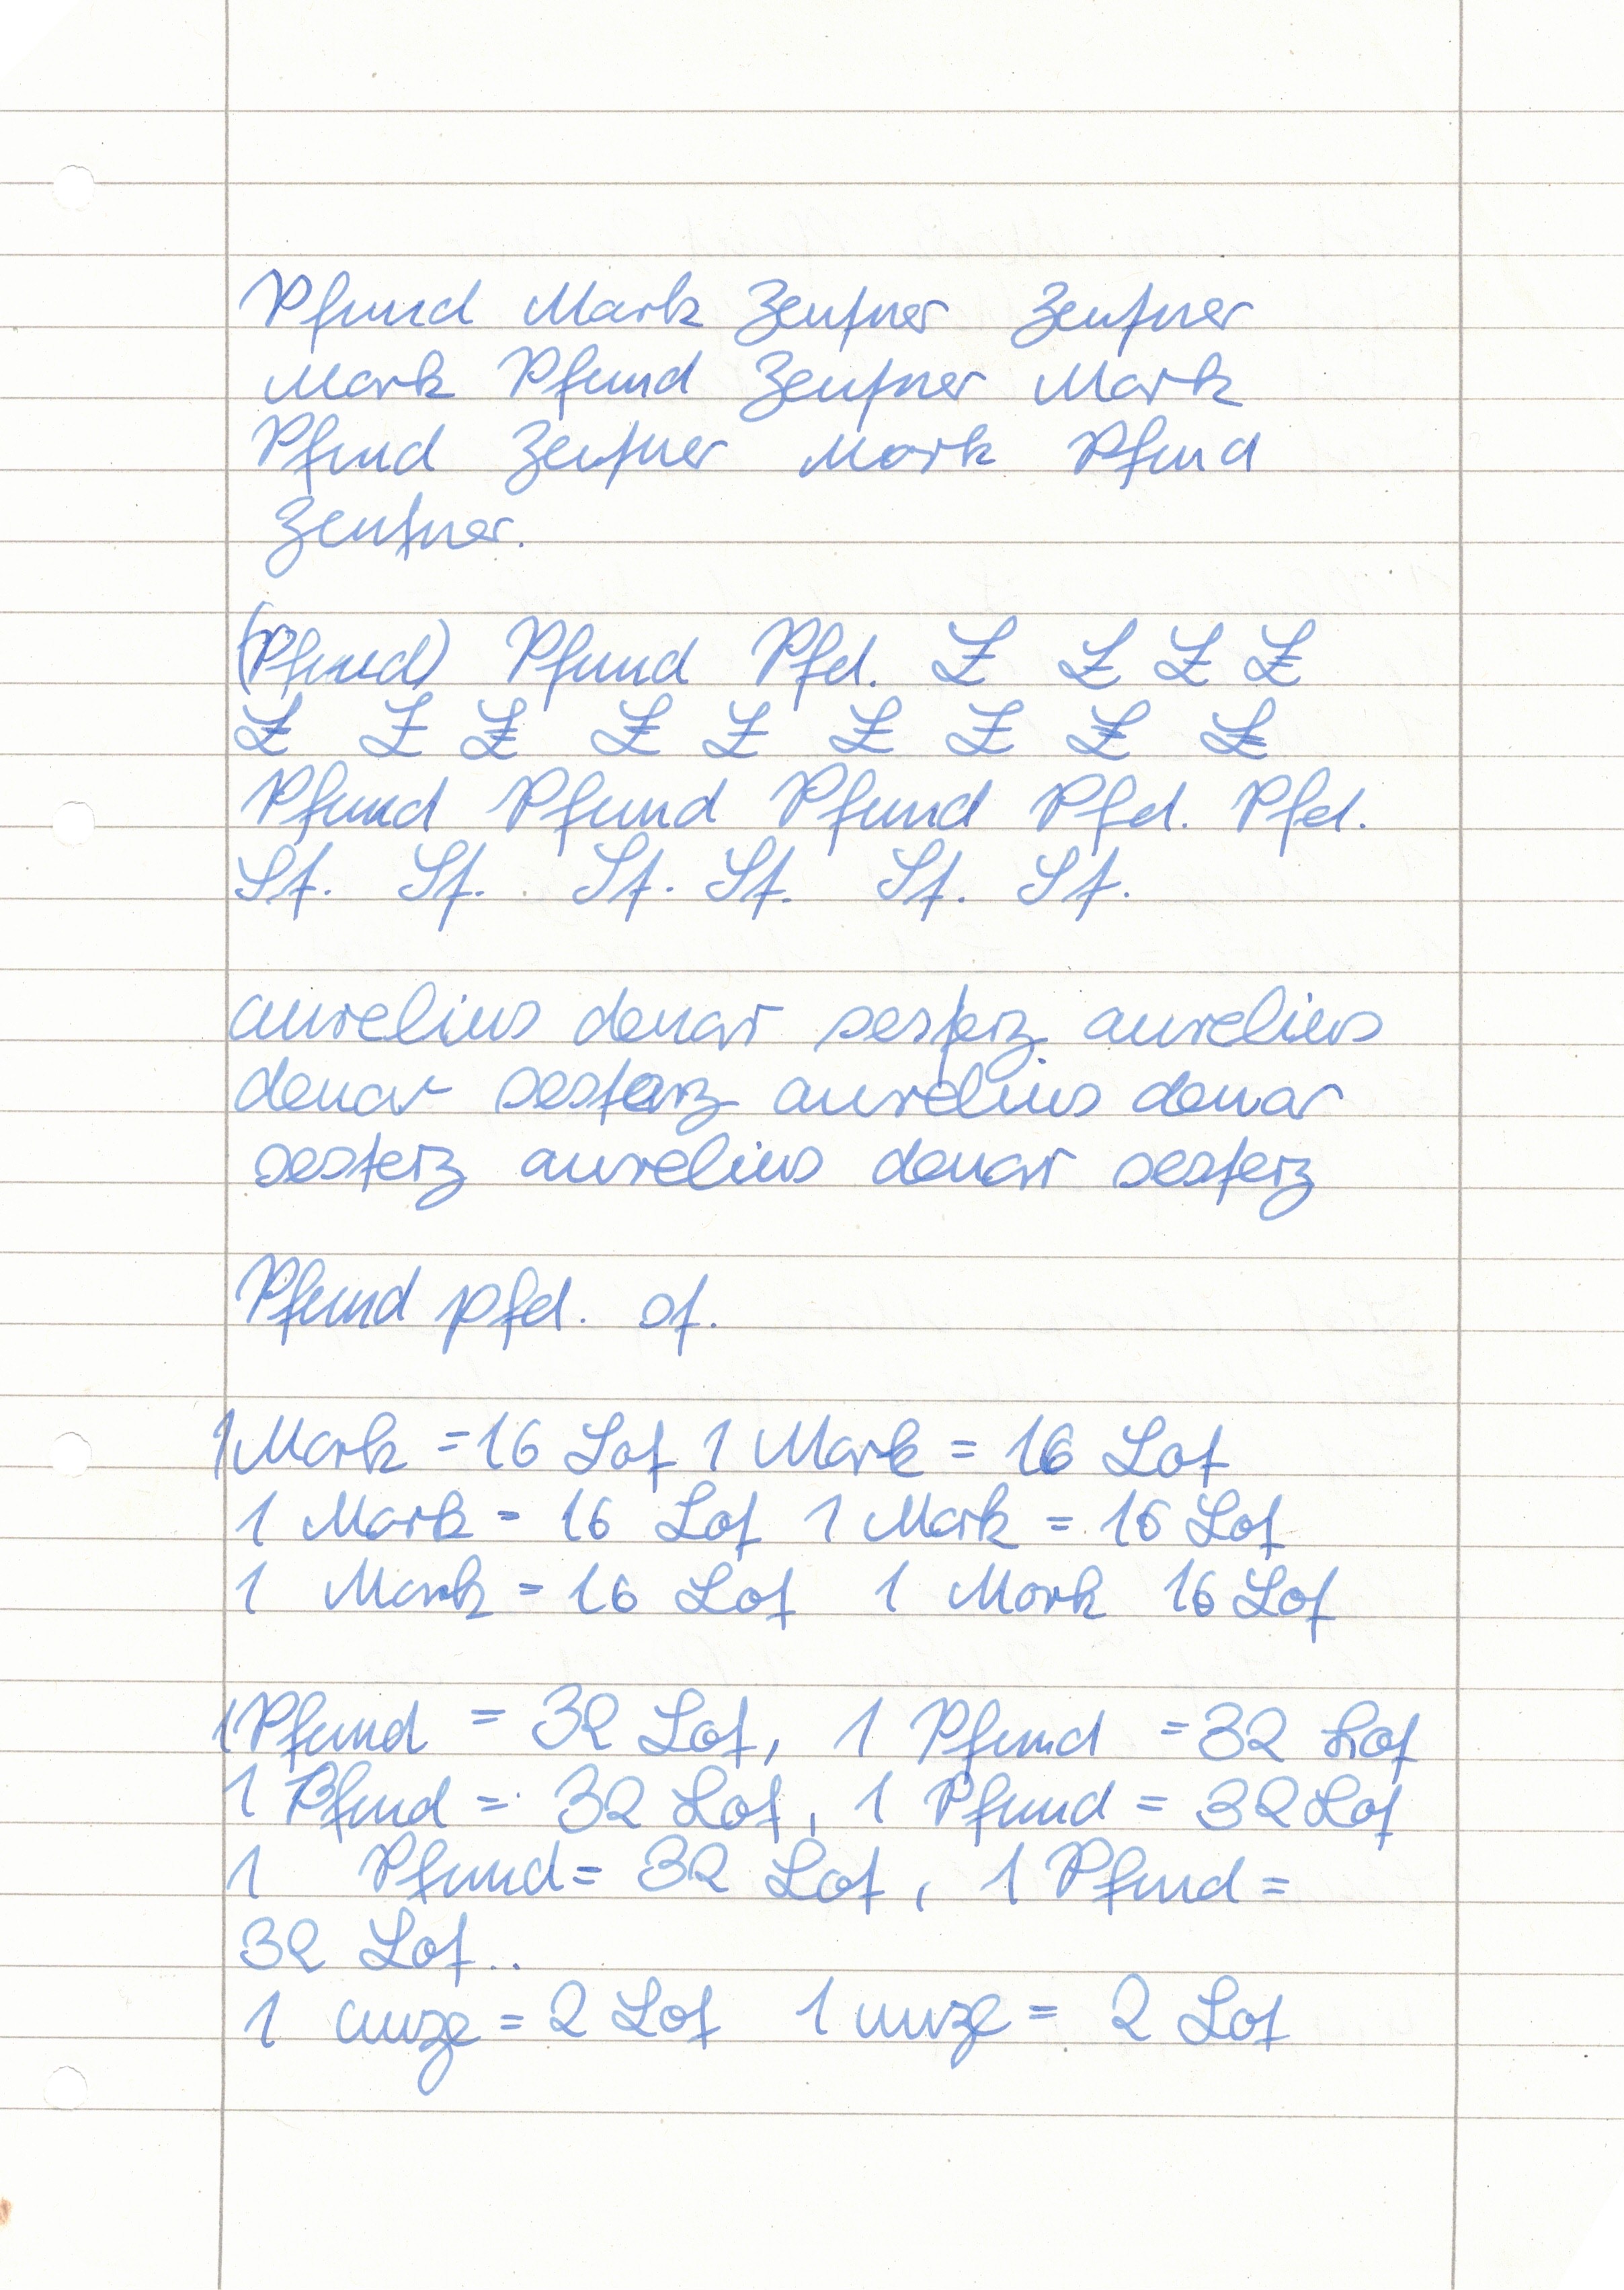 Pfund Mark Zentner Zentner
Mark Pfund Zentner Mark
Pfund Zentner Mark Pfund
Zentner.
(Pfund) Pfund Pfd. £ £ £ £
£ £ £ £ £ £ £ £ £
Pfund Pfund Pfund Pfd. Pfd.
St. St. St. St. St. St.
aurelius denar sesterz aurelius
denar sesterz aurelius denar
sesterz aurelius denar sesterz
Pfund pfd. st.
1 Mark = 16 Lot 1 Mark = 16 Lot
1 Mark = 16 Lot 1 Mark = 16 Lot
1 Mark = 16 Lot 1 Mark 16 Lot
1 Pfund = 32 Lot, 1 Pfund = 32 Lot
1 Pfund = 32 Lot, 1 Pfund = 32 Lot
1 Pfund = 32 Lot, 1 Pfund =
32 Lot..
1 unze = 2 Lot 1 unze = 2 Lot